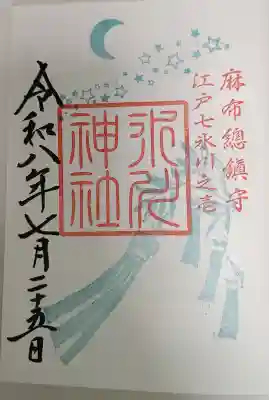 麻布總鎮守
江戸七氷川之壱
氷川
神社
令和八年七月二十五日